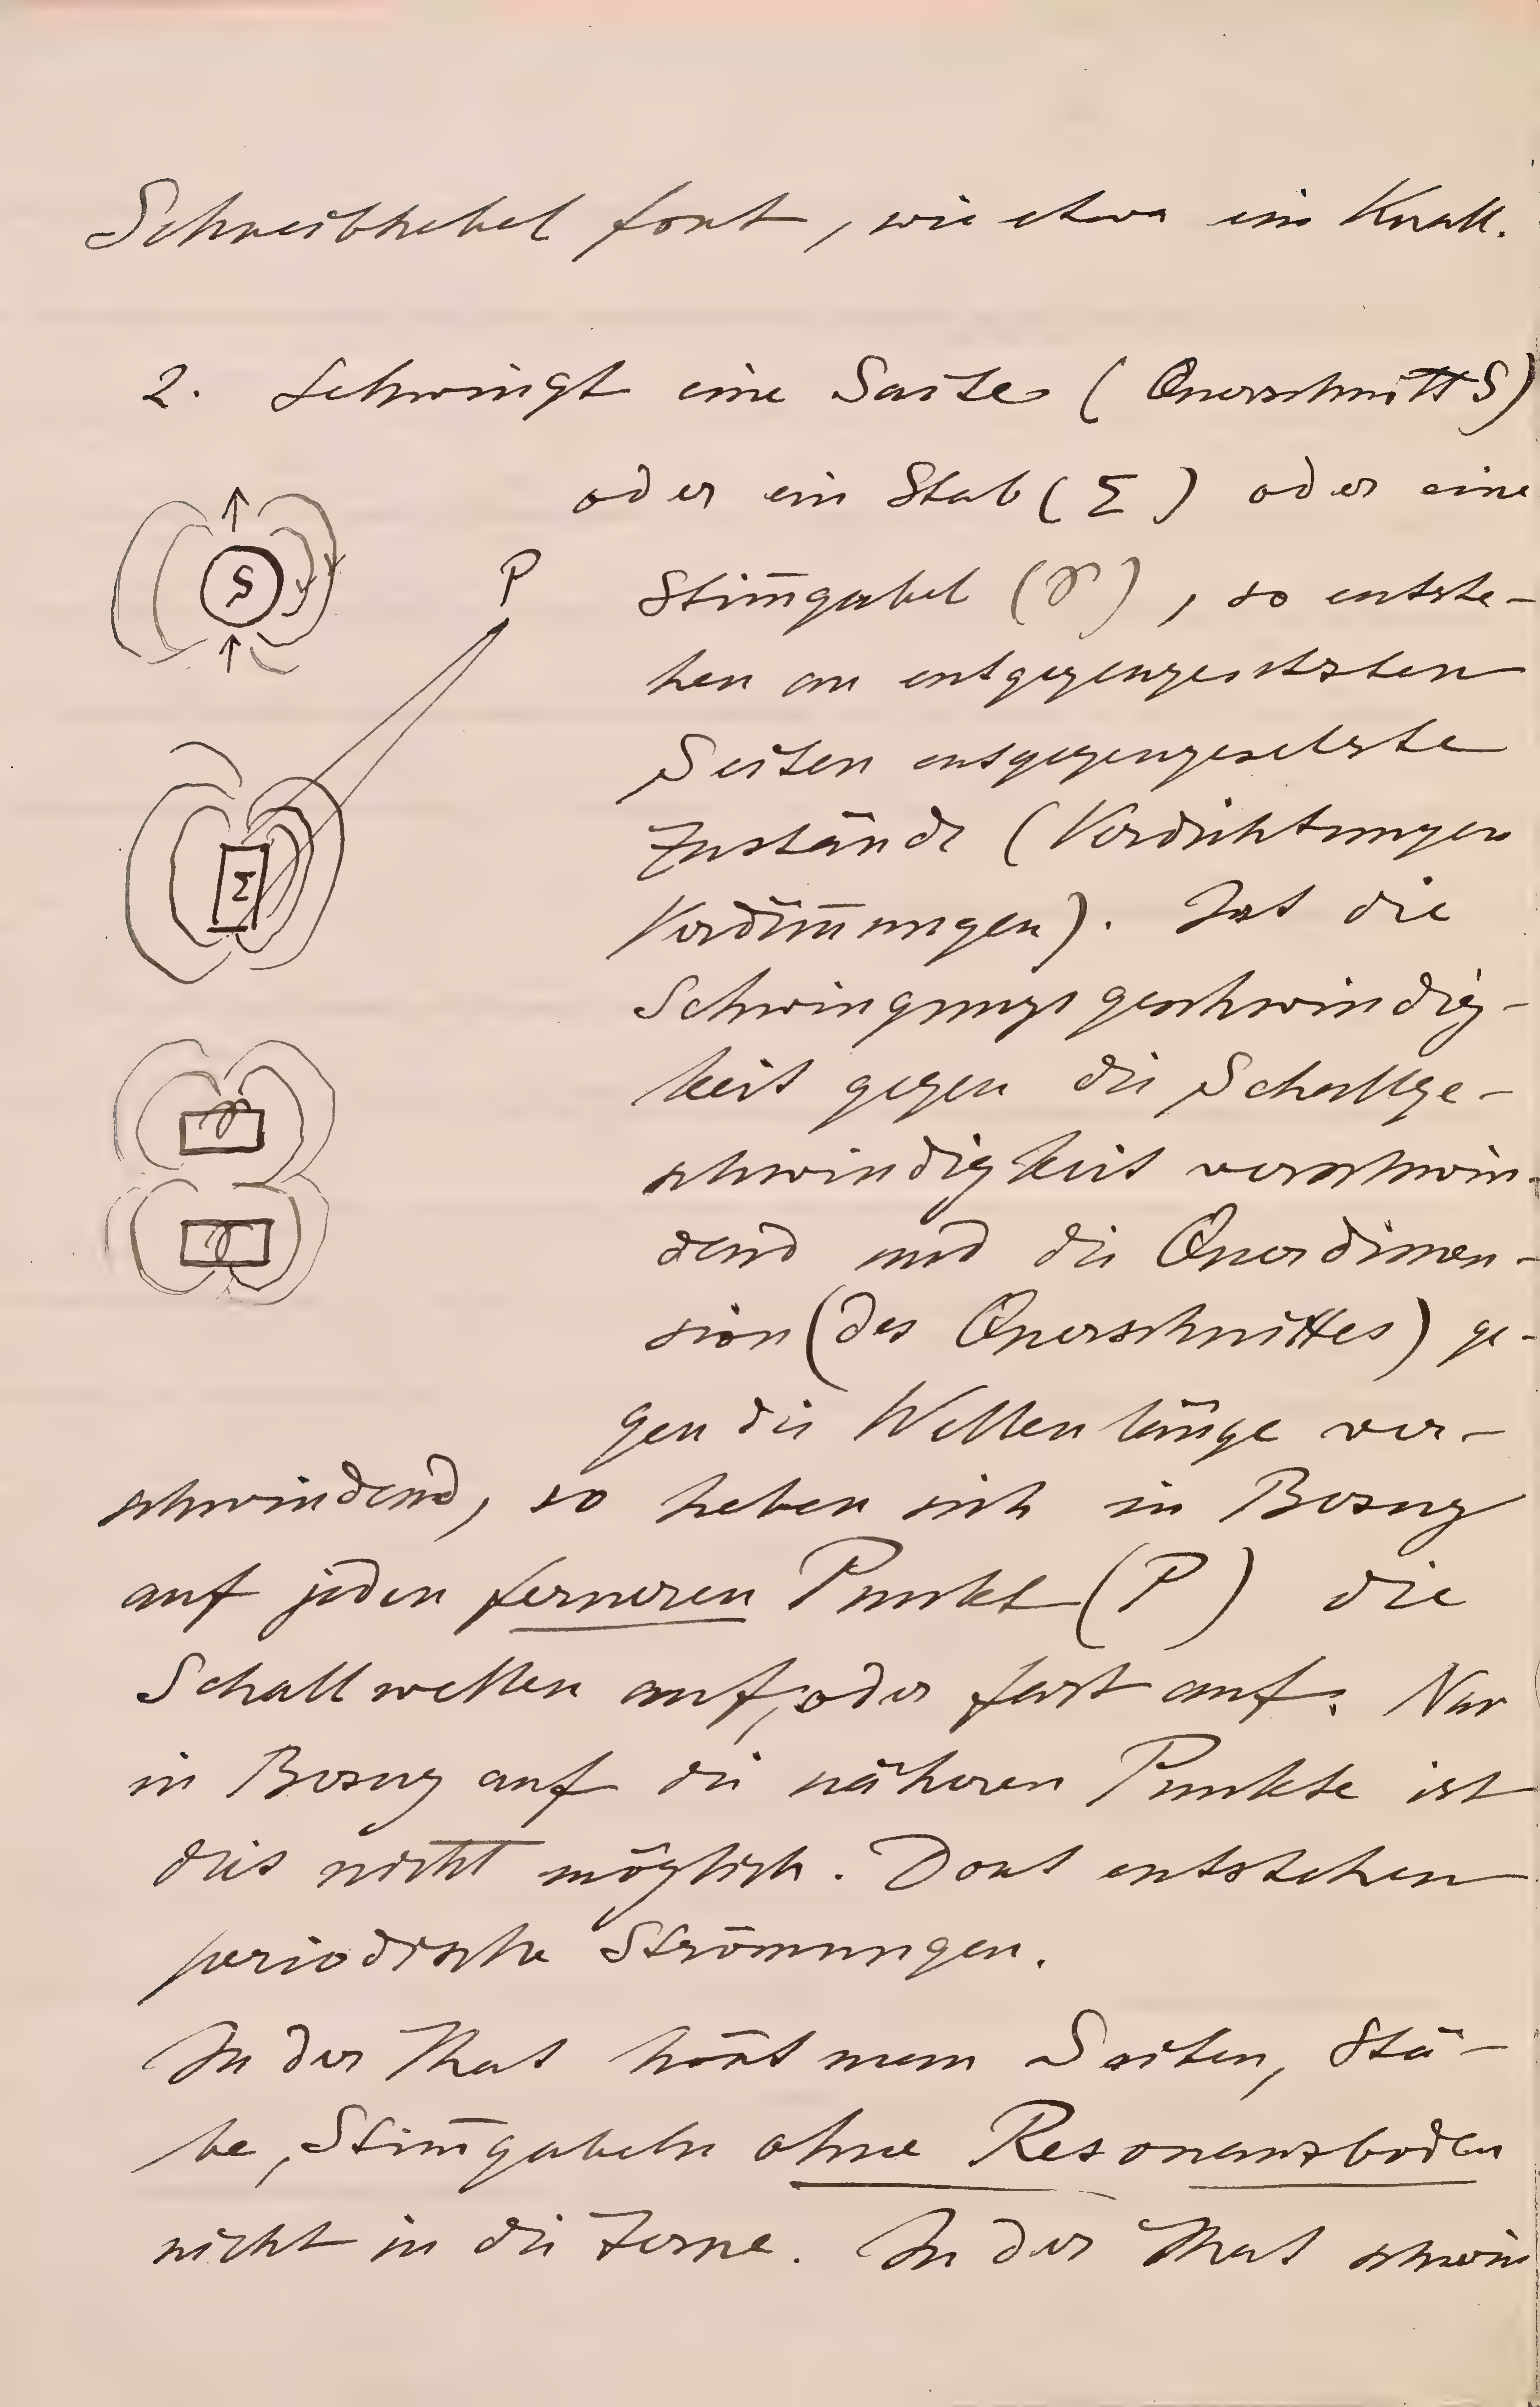 Schreibhebel fort, wie etwa ein Knall.
2. Schwingt eine Saite (Querschnitt S)
oder ein Stab (Σ) oder eine
Stim̄gabel (γ), so entste-
hen an entgegengesetzten
Seiten entgegengesetzte
Zustände (Verdichtungen
Verdün̄ungen). Ist die
Schwingungsgeschwindig-
keit gegen die Schallge-
schwindigkeit verschwin-
dend und die Querdimen-
sion (des Querschnittes) ge-
gen die Wellenlänge ver-
schwindend, so heben sich in Bezug
auf jeden ferneren Punkt (P) die
Schallwellen auf, oder fast auf. Nur
in Bezug auf die näheren Punkte ist
dies nicht möglich. Dort entstehen
periodische Strömungen.
In der That hört man Saiten, Stä-
be, Stim̄gabeln ohne Resonanzboden
nicht in die Ferne. In der That schwin
S
P
Σ